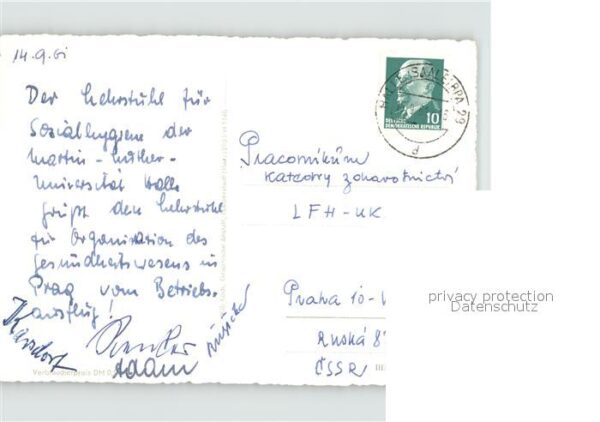 14.9.61
Der Lehrstuhl für
Sozialhygiene der
Martin-Luther-
Universität Halle
grüßt den Lehrstuhl
für Organisation des
Gesundheitswesens in
Prag vom Betriebs-
ausflug!
Karsdorf
Adam
Verbraucherpreis DM 0
10
DEUTSCHE
DEMOKRATISCHE REPUBLIK
HALLE (SAALE) BPA 29
d
Pracovníkům
Katedry zdravotnictví
LFH-UK
Praha 10-V
Ruská 8
ČSSR
privacy protection
Datenschutz